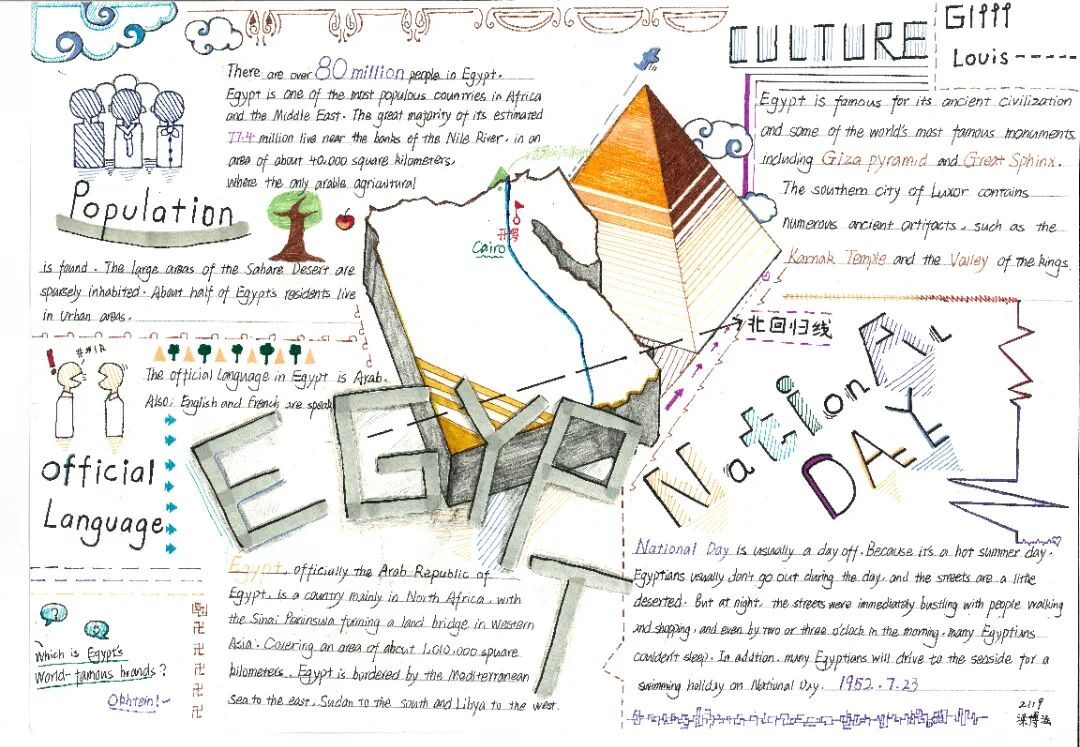 There are over 80 million people in Egypt.
Egypt is one of the most populous countries in Africa
and the Middle East. The great majority of its estimated
77.4 million live near the banks of the Nile River, in an
area of about 40.000 square kilometers,
where the only arable agricultural
Population
is found. The large areas of the Sahare Desert are
sparsely inhabited. About half of Egypt's residents live
in urban areas.
The official language in Egypt is Arab.
Also, English and French are speak
Official
Language
Which is Egypt's
world-famous brands?
Ophtein!~
Cairo
开罗
北回归线
EGYPT
Egypt, officially the Arab Republic of
Egypt, is a country mainly in North Africa, with
the Sinai Paninsula forming a land bridge in Western
Asia. Covering an area of about 1,010,000 square
kilometers. Egypt is bordered by the Mediterranean
sea to the east, Sudan to the south and Libya to the west.
CULTURE
Louis
Egypt is famous for its ancient civilization
and some of the world's most famous monuments
including Giza pyramid and Great Sphinx.
The southern city of Luxor contains
numerous ancient artifacts, such as the
Karnak Temple and the Valley of the kings.
National
DAY
National Day is usually a day off. Because it's a hot summer day.
Egyptians usually don't go out during the day, and the streets are a little
deserted. But at night, the streets were immediately bustling with people walking
and shopping, and even by two or three o'clock in the morning, many Egyptians
couldn't sleep. In addition, many Egyptians will drive to the seaside for a
swimming holiday on National Day. 1952.7.23
2119